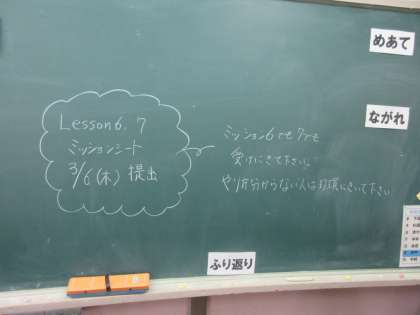 めあて
ながれ
Lesson 6. 7
ミッションシート
3/6 (木) 提出
ミッション6でも7でも
受けにきて下さい。
やり方分からない人は
にきいて下さい
ふり返り